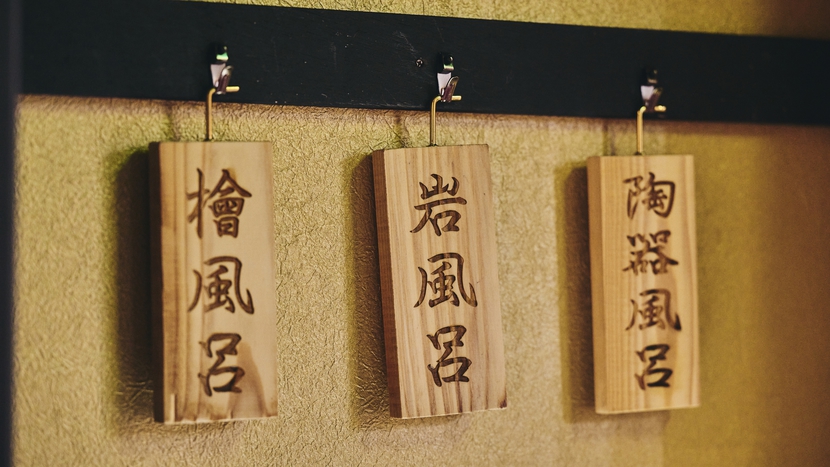 檜風呂
岩風呂
陶器風呂